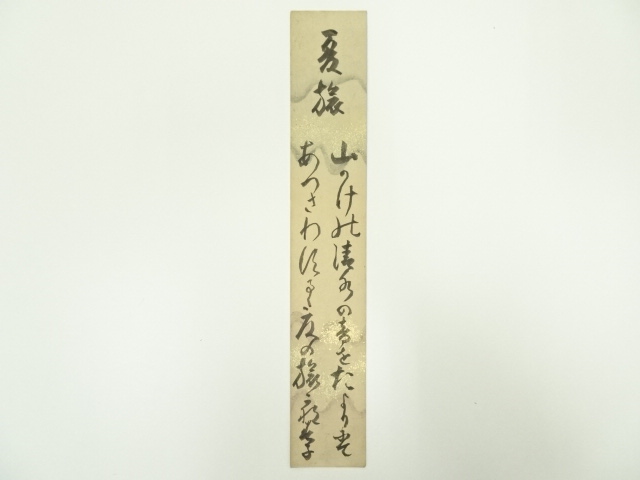 夏旅
山かけの清水の音をたよりにて
あつさわするゝ夏の旅